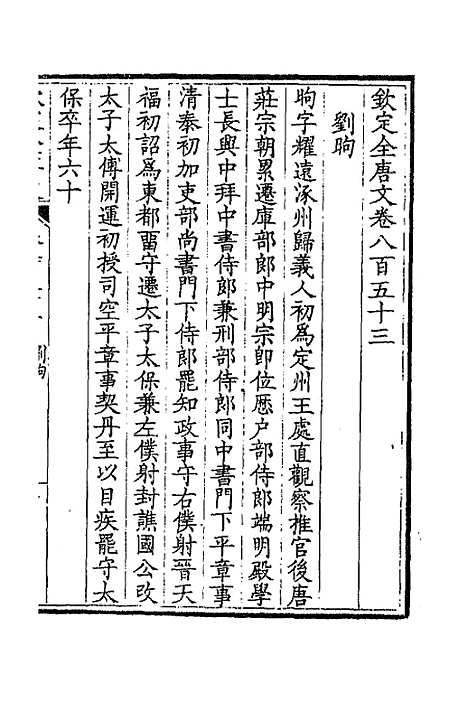 欽定全唐文卷八百五十三
劉昫
昫字耀遠涿州歸義人初爲定州王處直觀察推官後唐
莊宗朝累遷庫部郎中明宗卽位歷户部侍郎端明殿學
士長興中拜中書侍郎兼刑部侍郎同中書門下平章事
清泰初加吏部尚書門下侍郎罷知政事守右僕射晉天
福初詔爲東都畱守遷太子太保兼左僕射封譙國公改
太子太傅開運初授司空平章事契丹至以目疾罷守太
保卒年六十
劉昫